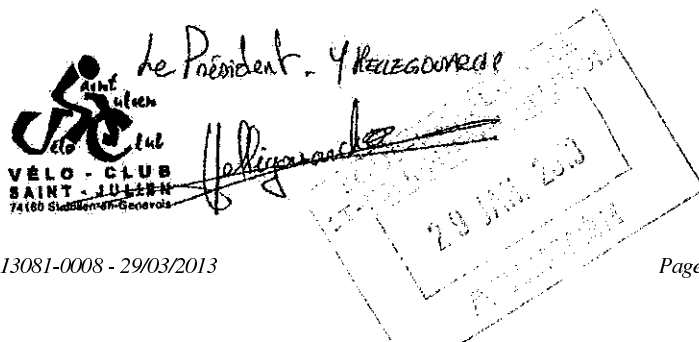 Le Président. Y HELLEGOUARCH
aint
ulien
élo
lub
VÉLO - CLUB
SAINT - JULIEN
74160 St-Julien-en-Genevois
29 JAN. 2013
13081-0008 - 29/03/2013
Page